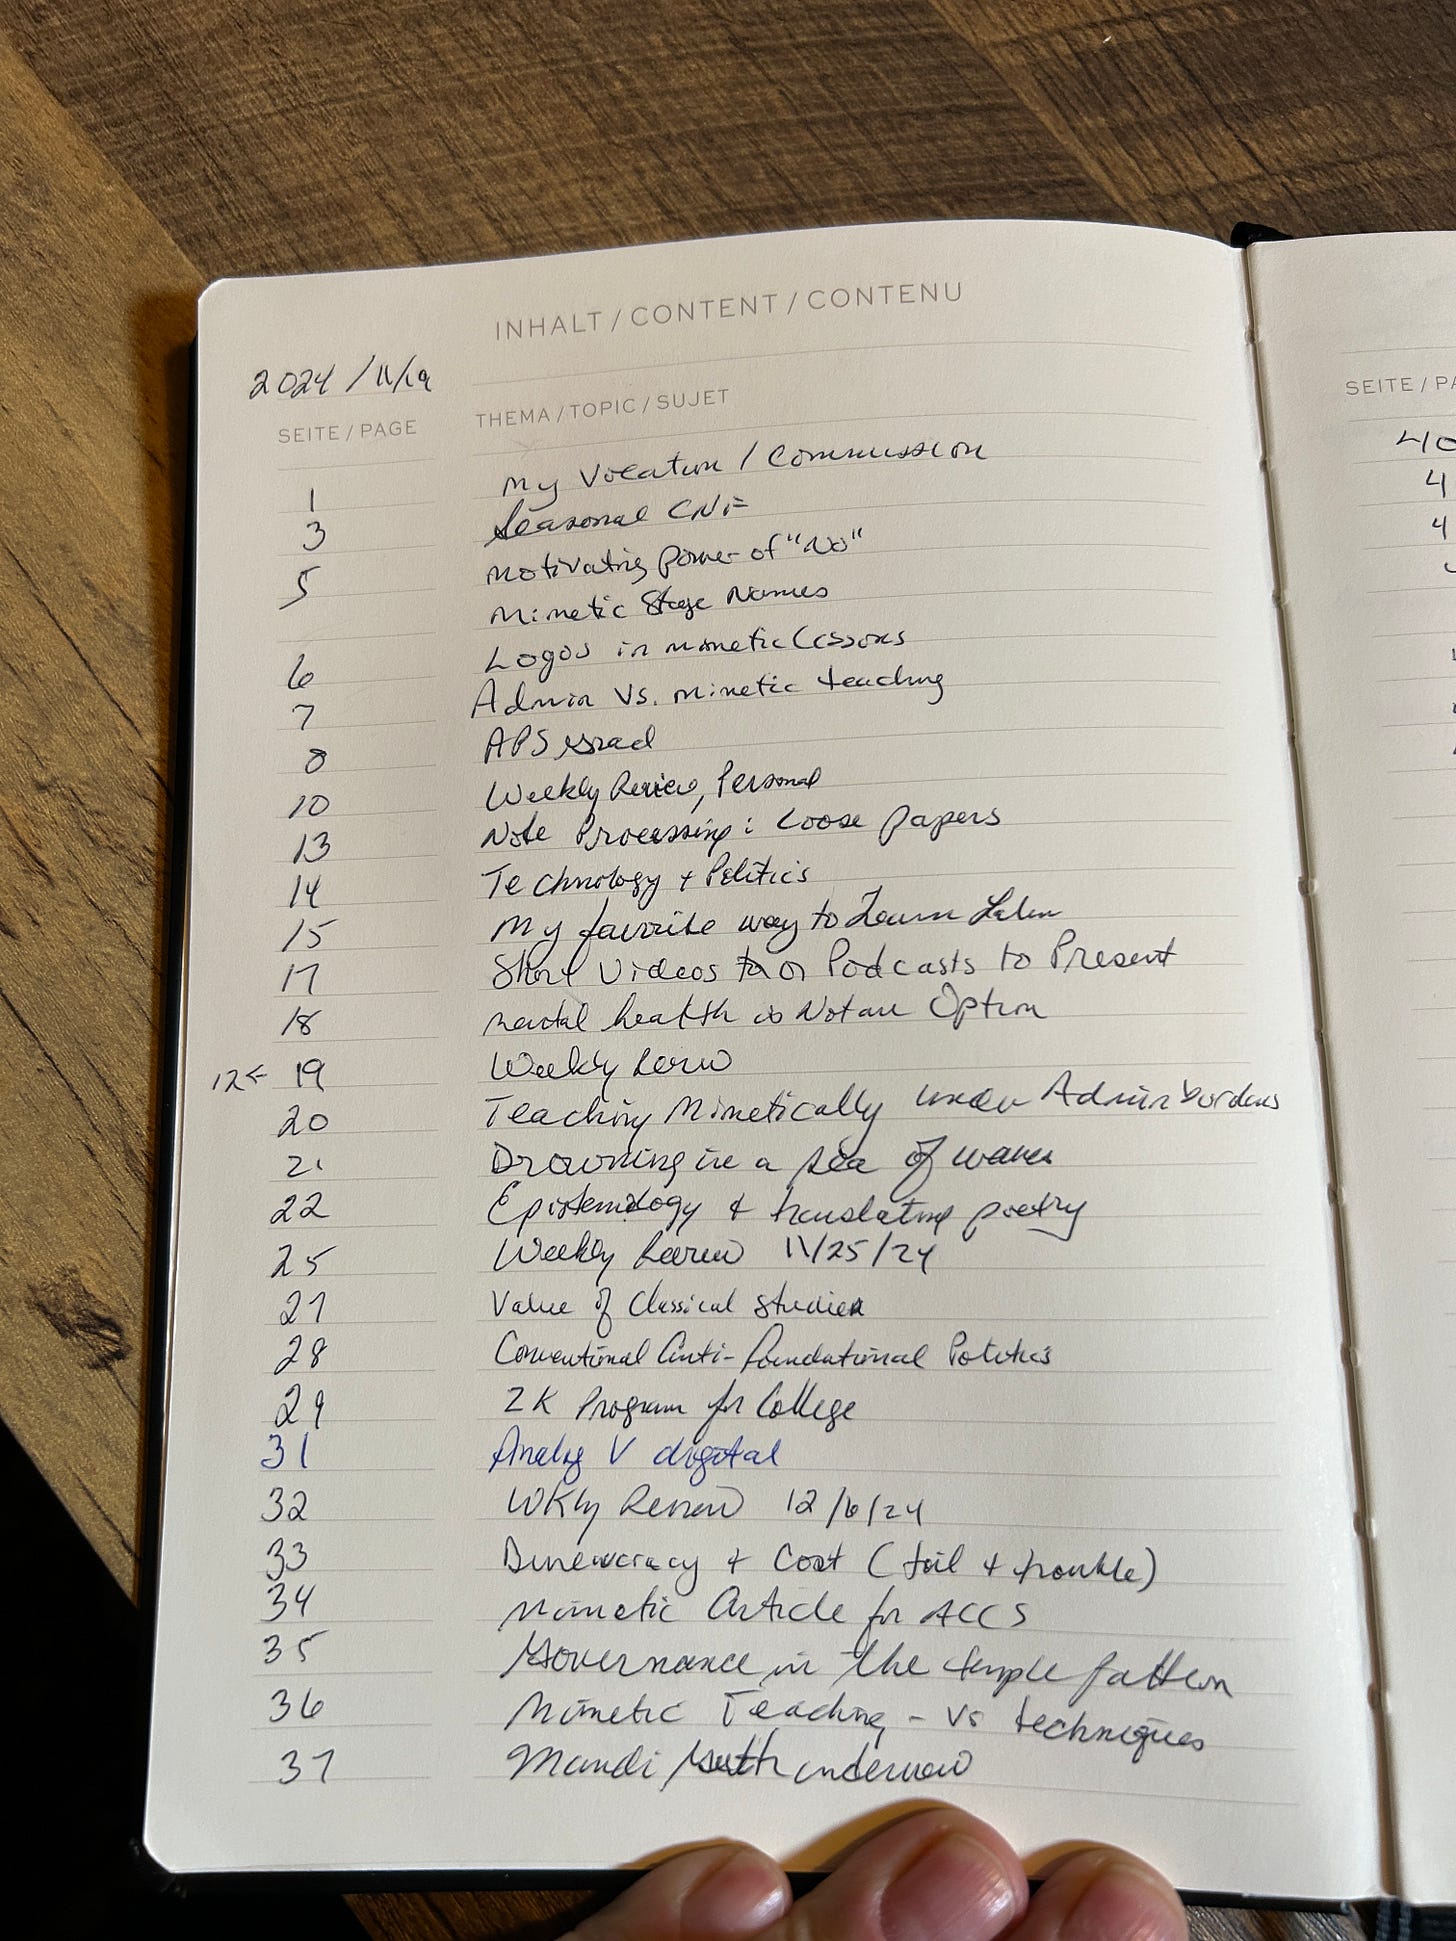 INHALT / CONTENT / CONTENU
2024 / 11/19
SEITE / PAGE THEMA / TOPIC / SUJET
1 My Vocation / Commission
3 Seasonal
5 Motivating power of "No"
Mimetic Stage Names
6 Logos in mimetic Lessons
7 Admin Vs. Mimetic teaching
8 APS
10 Weekly Review, Personal
13 Note Processing: Loose papers
14 Technology + Politics
15 My favorite way to Learn Latin
17 Short Videos or Podcasts to Present
18 Mental health is Not an Option
12< 19 Weekly Review
20 Teaching Mimetically under Admin burdens
21 Drowning in a sea of waves
22 Epistemology & translating poetry
25 Weekly Review 11/25/24
27 Value of Classical Studies
28 Conventional Anti-foundational Politics
29 2K Program for College
31 Analog V digital
32 Wkly Review 12/6/24
33 Bureaucracy + Cost (toil + trouble)
34 Mimetic Article for ACCS
35 Governance in the temple pattern
36 Mimetic Teaching - vs techniques
37 Mandi interview
SEITE / PA
40
4
4